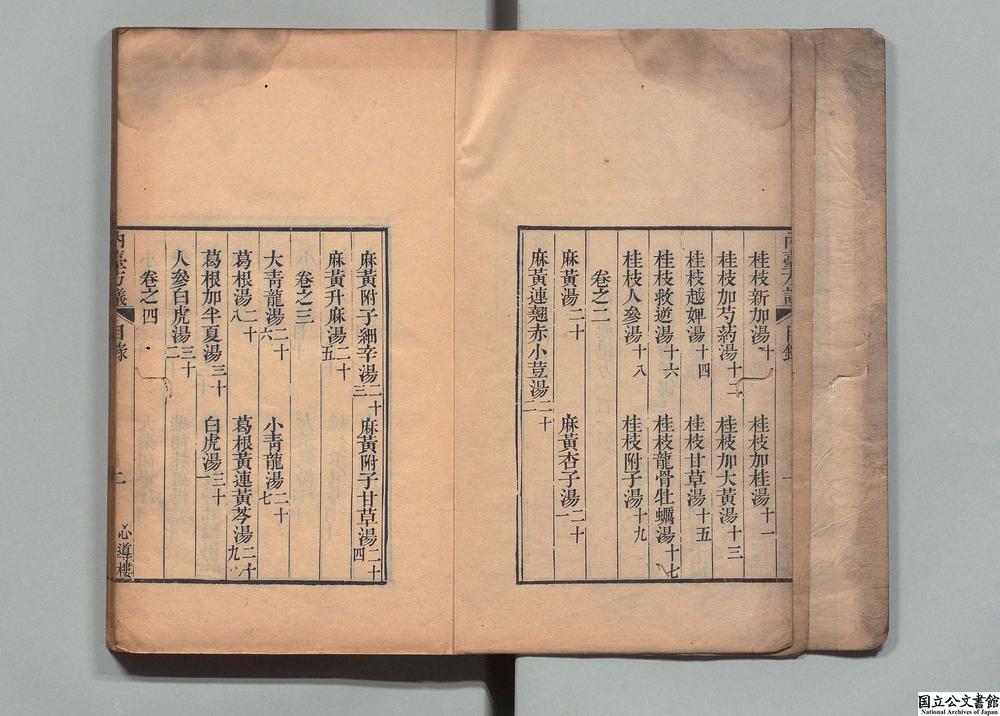 桂枝新加湯十　桂枝加桂湯十一
桂枝加芍藥湯十二　桂枝加大黃湯十三
桂枝越婢湯十四　桂枝甘草湯十五
桂枝救逆湯十六　桂枝龍骨牡蠣湯十七
桂枝人參湯十八　桂枝附子湯十九
卷之二
麻黃湯二十　麻黃杏子湯二十一
麻黃連翹赤小荳湯二十二
麻黃附子細辛湯二十三　麻黃附子甘草湯二十四
麻黃升麻湯二十五
卷之三
大靑龍湯二十六　小靑龍湯二十七
葛根湯二十八　葛根黃連黃芩湯二十九
葛根加半夏湯三十　白虎湯三十一
人參白虎湯三十二
卷之四
內臺方議　目錄　二　心導樓
国立公文書館
National Archives of Japan